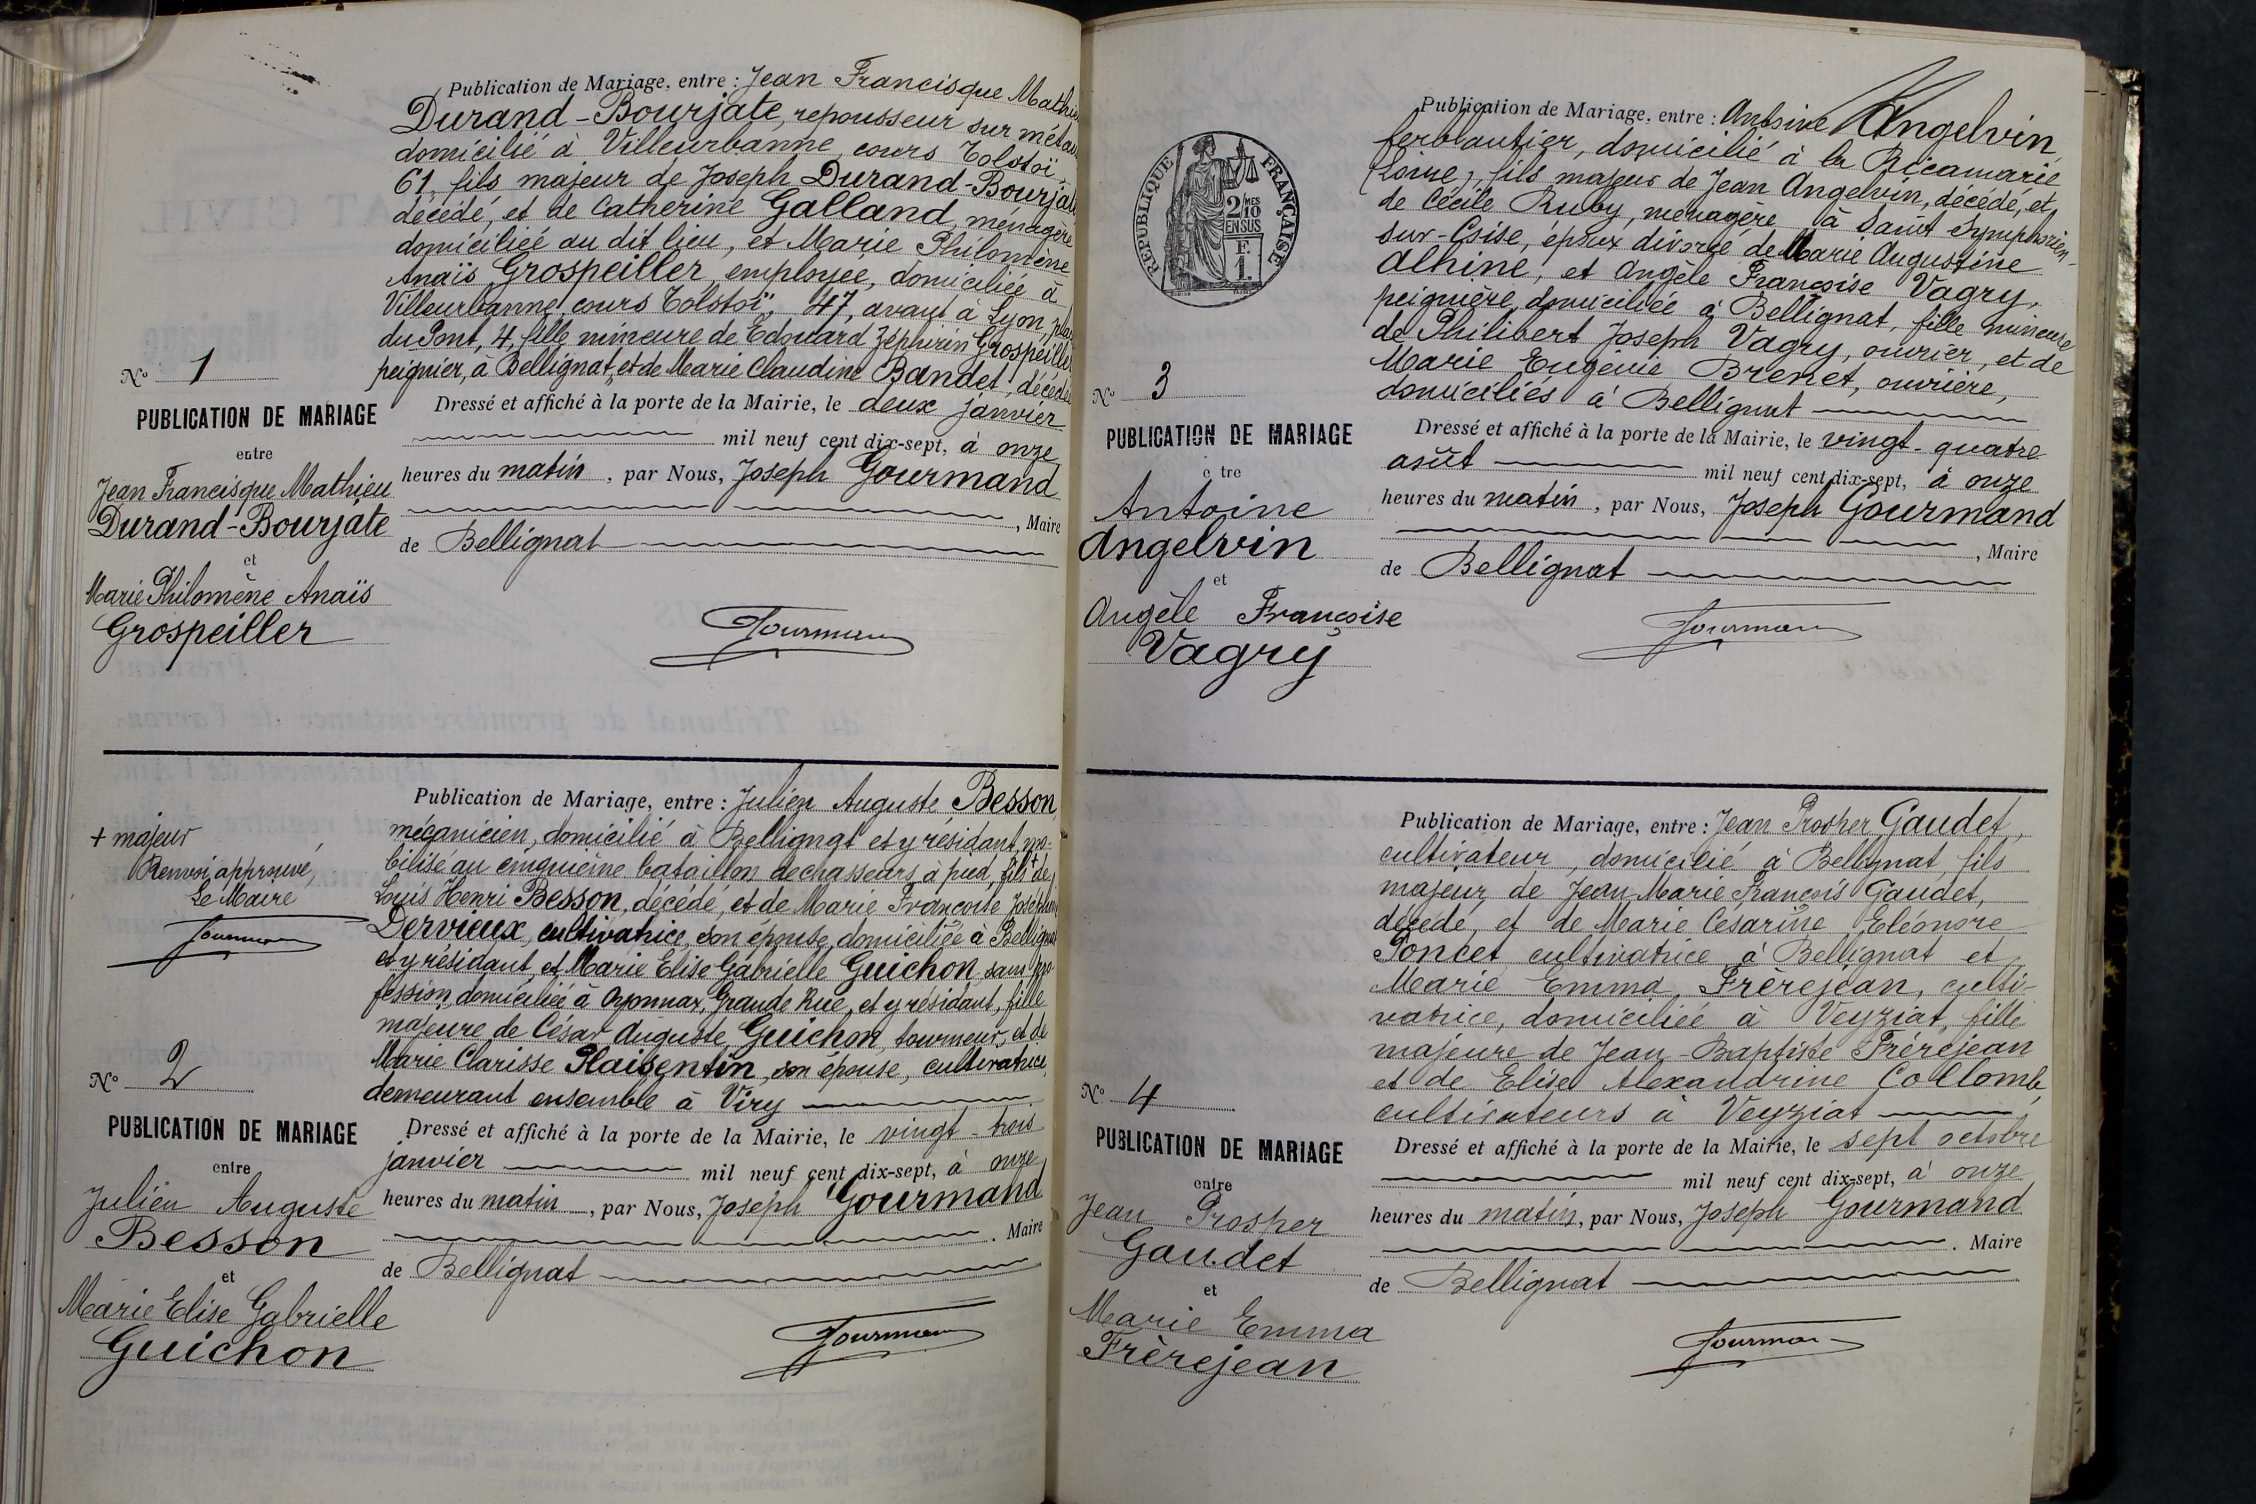 Publication de Mariage, entre : Jean Francisque Mathieu
Durand-Bourjate, repousseur sur métaux
domicilié à Villeurbanne, cours Tolstoï,
61, fils majeur de Joseph Durand-Bourjate
décédé, et de Catherine Galland, ménagère
domiciliée au dit lieu, et Marie Philomène
Anaïs Grospeiller, employée, domiciliée à
Villeurbanne, cours Tolstoï, 47, avant à Lyon, place
du Pont, 4, fille mineure de Edouard Zéphirin Grospeiller
peignier, à Bellignat, et de Marie Claudine Bandet, décédée
Nº 1
PUBLICATION DE MARIAGE
entre
Jean Francisque Mathieu
Durand-Bourjate
et
Marie Philomène Anaïs
Grospeiller
Dressé et affiché à la porte de la Mairie, le deux janvier
mil neuf cent dix-sept, à onze
heures du matin, par Nous, Joseph Gourmand
, Maire
de Bellignat
Gourmand
Publication de Mariage, entre : Julien Auguste Besson
mécanicien, domicilié à Bellignat et y résidant, mo-
bilisé au cinquième bataillon de chasseurs à pied, fils + de
Louis Henri Besson, décédé, et de Marie Françoise Joséphine
Dervieux, cultivatrice, son épouse, domiciliée à Bellignat
et y résidant, et Marie Elise Gabrielle Guichon, sans pro-
fession, domiciliée à Oyonnax, Grande Rue, et y résidant, fille
majeure de César Auguste Guichon, tourneur, et de
Marie Clarisse Plaisentin, son épouse, cultivatrice,
demeurant ensemble à Viry
+ majeur
Renvoi approuvé,
Le Maire
Gourmand
Nº 2
PUBLICATION DE MARIAGE
entre
Julien Auguste
Besson
et
Marie Elise Gabrielle
Guichon
Dressé et affiché à la porte de la Mairie, le vingt-trois
janvier mil neuf cent dix-sept, à onze
heures du matin, par Nous, Joseph Gourmand
. Maire
de Bellignat
Gourmand
REPUBLIQUE FRANÇAISE
2 MES
10
EN SUS
F
1
Publication de Mariage, entre : Antoine Angelvin
ferblantier, domicilié à la Ricamarie
(Loire), fils majeur de Jean Angelvin, décédé, et
de Cécile Ruby, ménagère à Saint Symphorien-
sur-Coise, époux divorcé de Marie Augustine
Alhine, et Angèle Françoise Vagry,
peignière, domiciliée à Bellignat, fille mineure
de Philibert Joseph Vagry, ouvrier, et de
Marie Eugénie Brenet, ouvrière,
domiciliés à Bellignat
Nº 3
PUBLICATION DE MARIAGE
e tre
Antoine
Angelvin
et
Angèle Françoise
Vagry
Dressé et affiché à la porte de la Mairie, le vingt-quatre
août mil neuf cent dix-sept, à onze
heures du matin, par Nous, Joseph Gourmand
, Maire
de Bellignat
Gourmand
Publication de Mariage, entre : Jean Prosper Gaudet,
cultivateur, domicilié à Bellignat, fils
majeur de Jean-Marie François Gaudet,
décédé, et de Marie Césarine Eléonore
Poncet, cultivatrice à Bellignat et
Marie Emma Frèrejean, culti-
vatrice, domiciliée à Veyziat, fille
majeure de Jean-Baptiste Frèrejean
et de Elise Alexandrine Collomb,
cultivateurs à Veyziat
Nº 4
PUBLICATION DE MARIAGE
entre
Jean Prosper
Gaudet
et
Marie Emma
Frèrejean
Dressé et affiché à la porte de la Mairie, le sept octobre
mil neuf cent dix-sept, à onze
heures du matin, par Nous, Joseph Gourmand
. Maire
de Bellignat
Gourmand